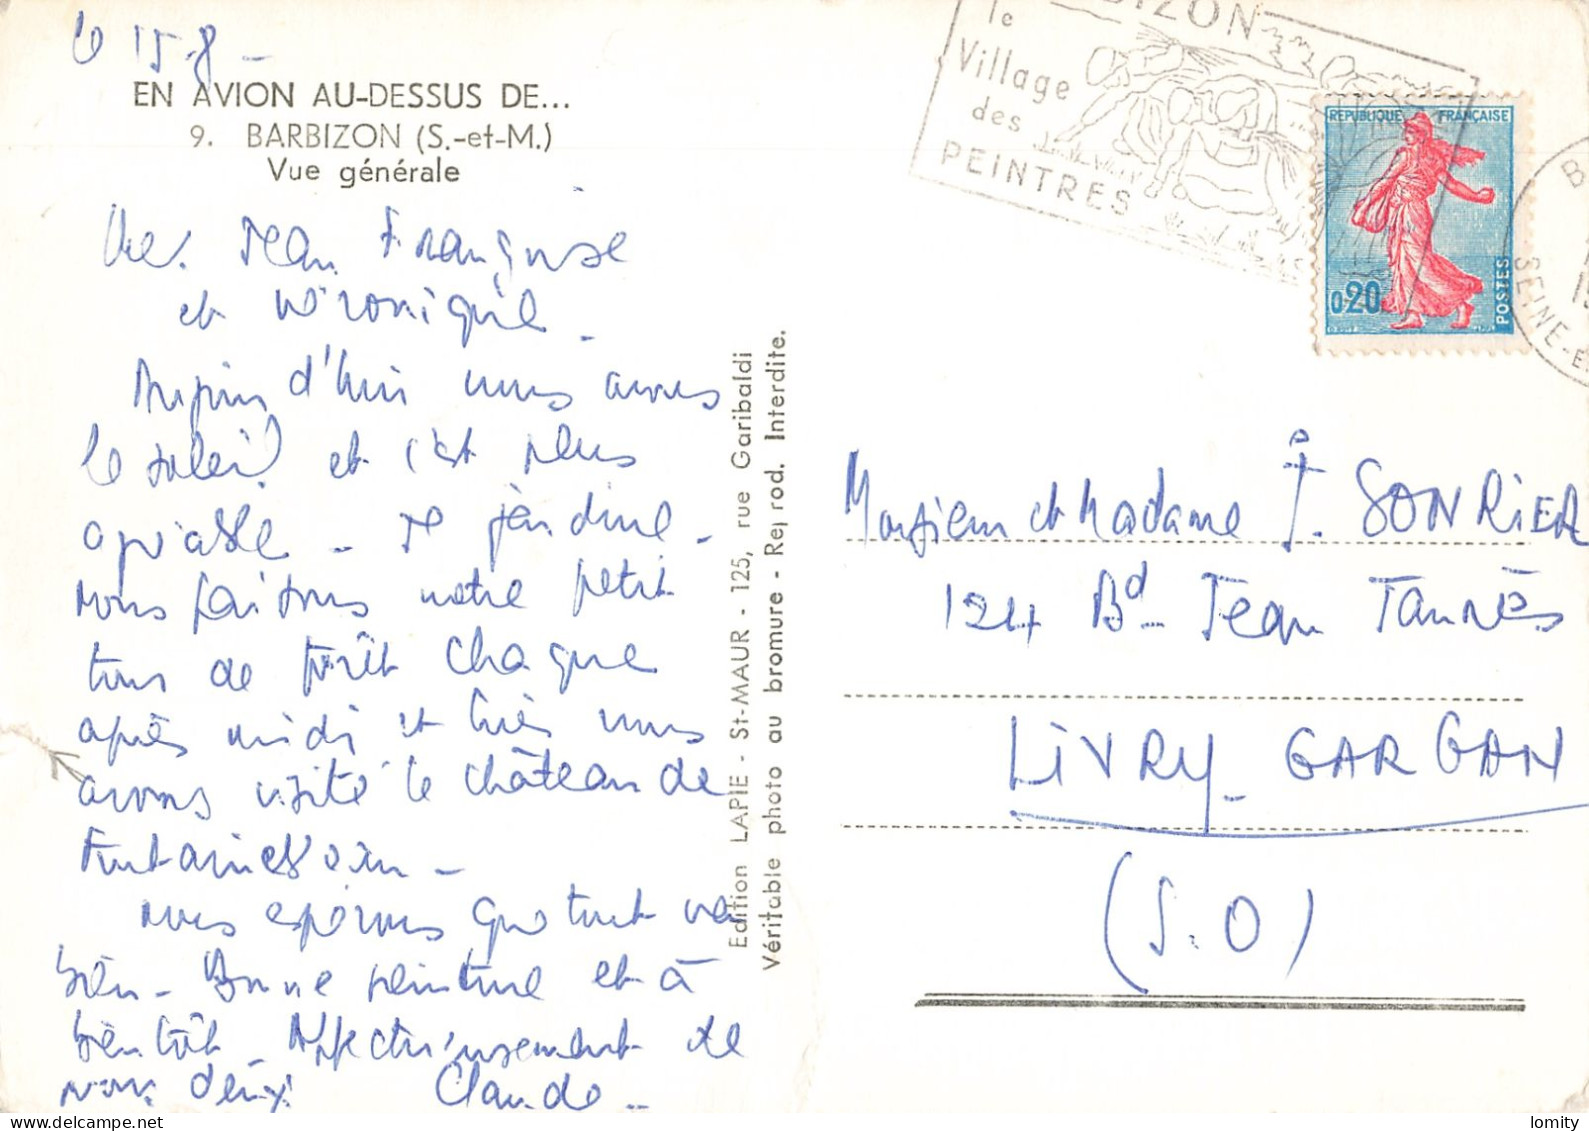 le 15-8-
EN AVION AU-DESSUS DE...
9. BARBIZON (S.-et-M.)
Vue générale
Jean Françoise
et Véronique -
Aujourd'hui nous avons
le soleil et c'est plus
agréable - Je jardine -
nous faisons notre petit
tour de forêt chaque
après midi et hier nous
avons visité le château de
Fontainebleau -
nous espérons que tout va
bien - Bonne peinture et à
bientôt - Affectueusement de
nous deux Claude -
Edition LAPIE - St-MAUR - 125, rue Garibaldi
Véritable photo au bromure - Rej rod. Interdite.
BIZON
le
Village
des
PEINTRES
REPUBLIQUE FRANÇAISE
0,20
POSTES
SEINE-E
Monsieur et Madame J. SONRIER
124 Bd Jean Jaurès
LIVRY-GARGAN
(S.O)
lomity